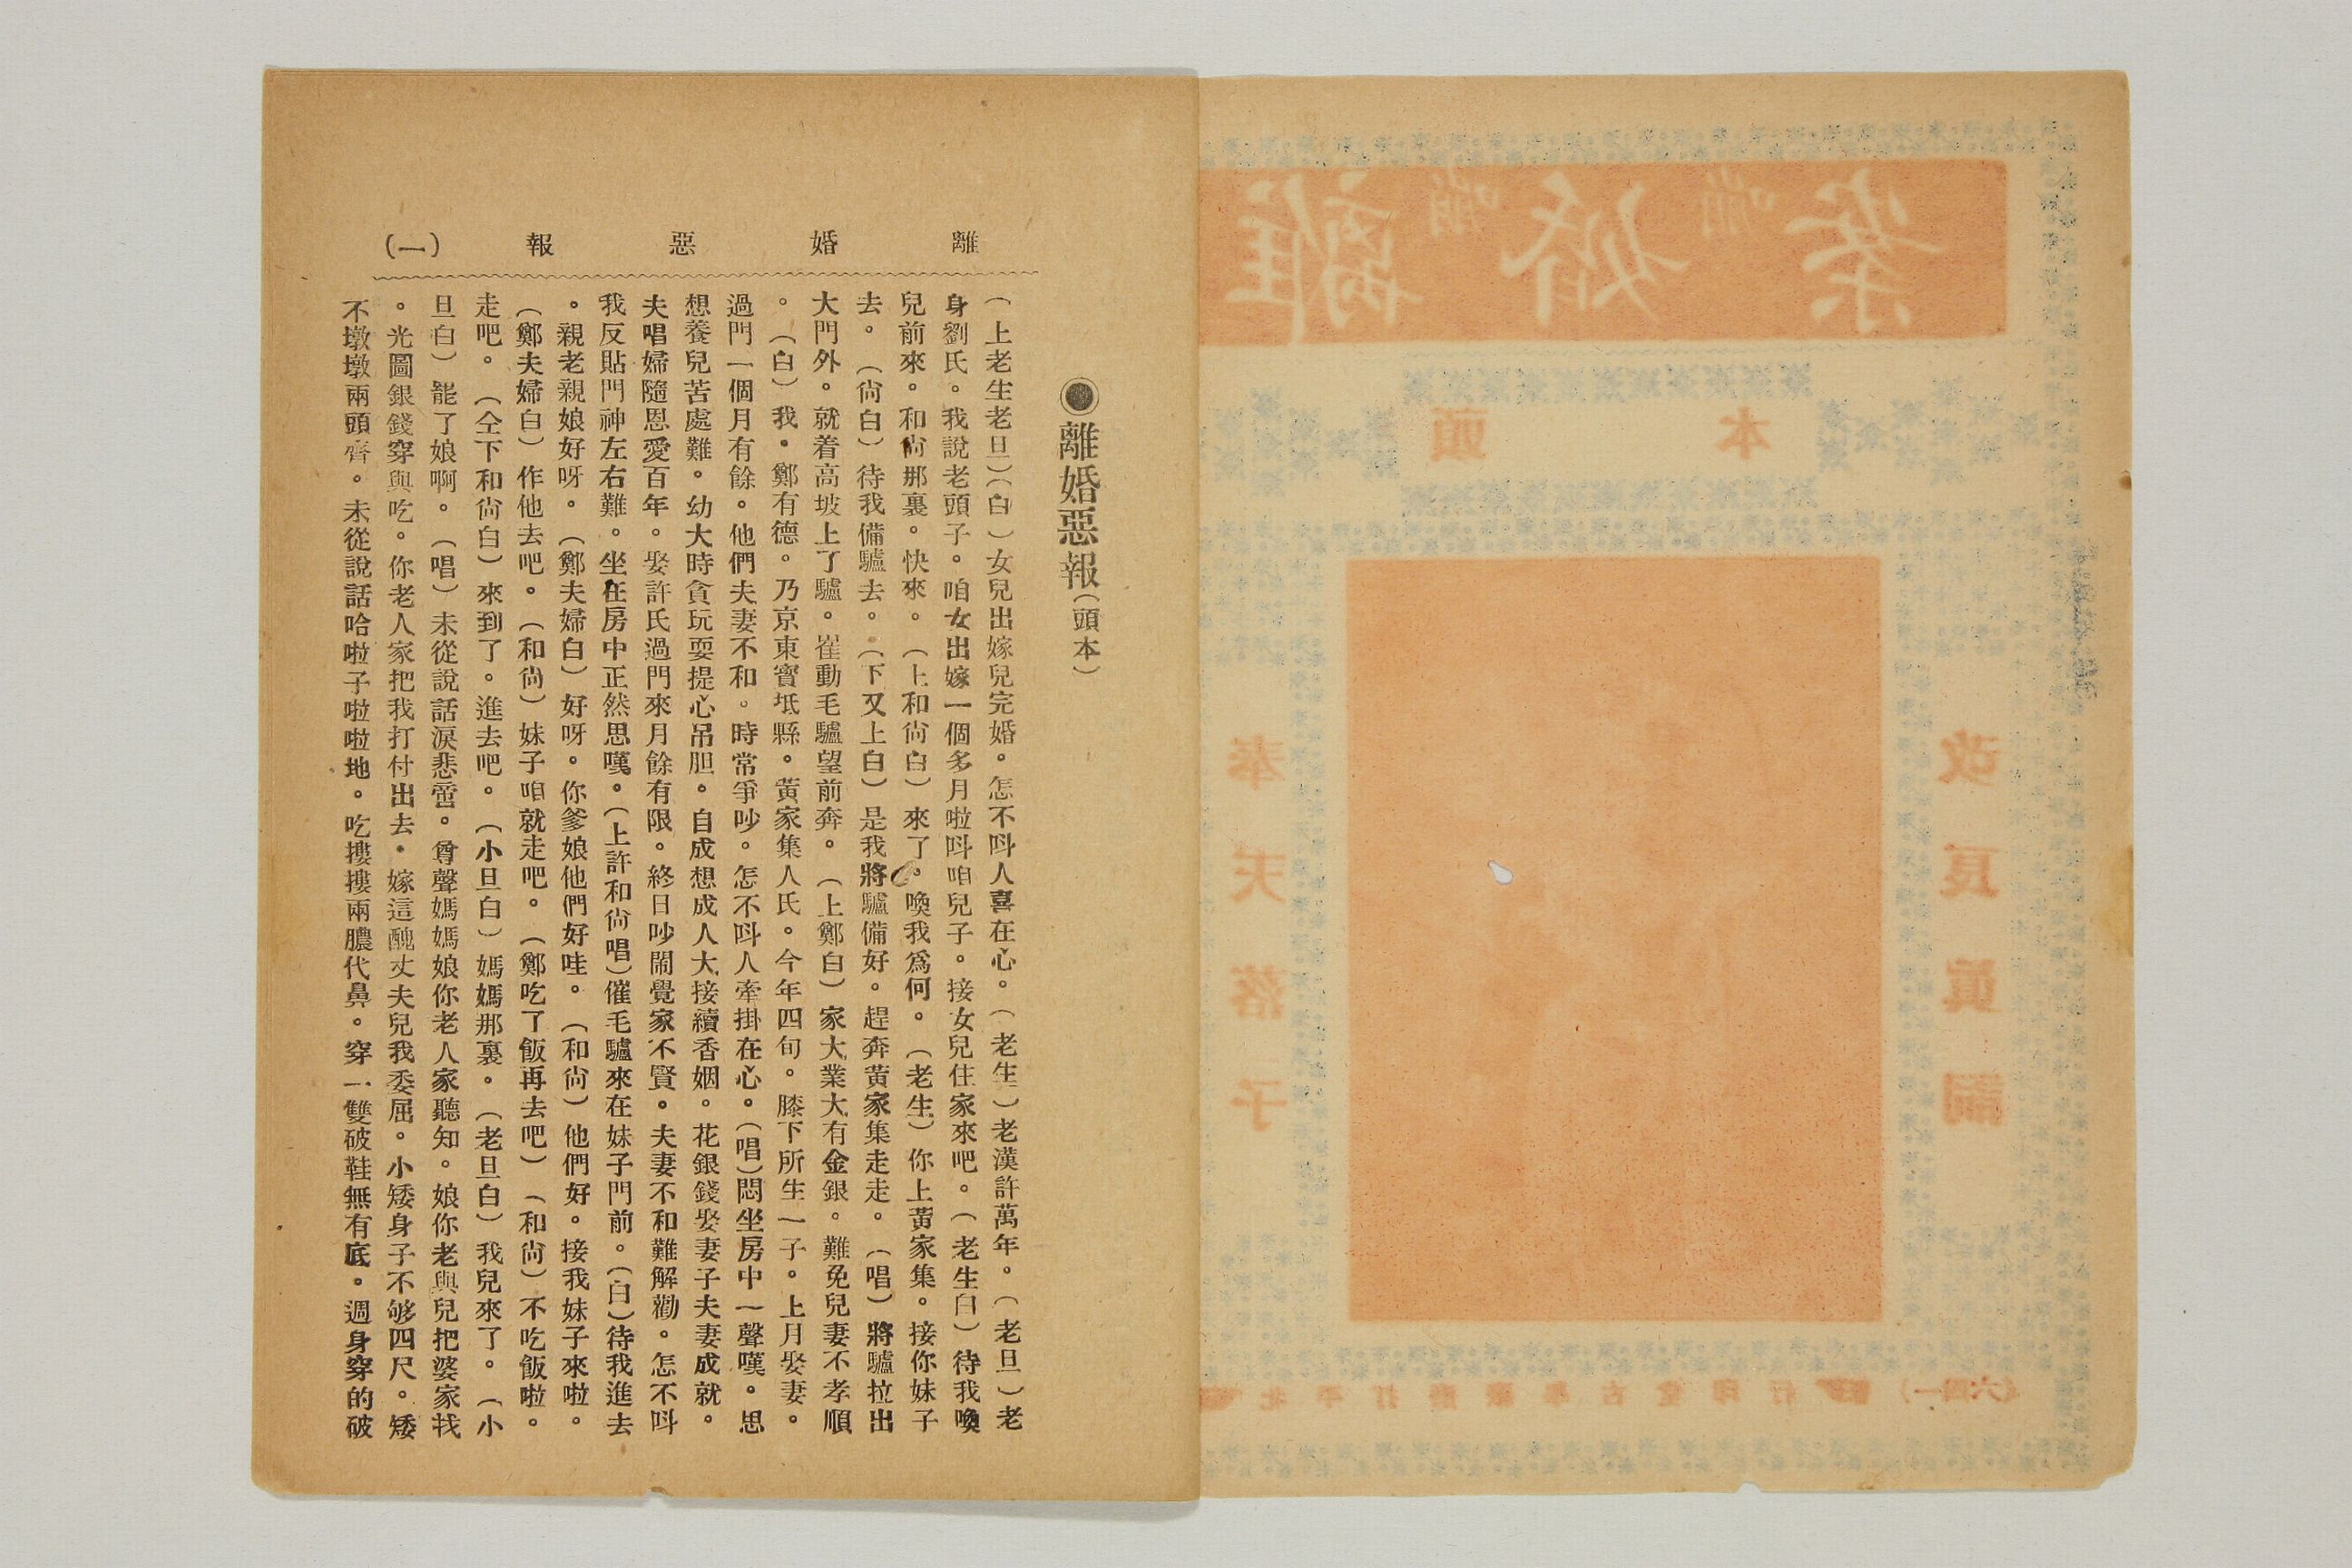 離婚惡報 (一)
●離婚惡報(頭本)
(上老生老旦)(白)女兒出嫁兒完婚。怎不呌人喜在心。(老生)老漢許萬年。(老旦)老
身劉氏。我說老頭子。咱女出嫁一個多月啦呌咱兒子。接女兒住家來吧。(老生白)待我喚
兒前來。和尙那裏。快來。(上和尙白)來了。喚我爲何。(老生)你上黃家集。接你妹子
去。(尙白)待我備驢去。(下又上白)是我將驢備好。趕奔黃家集走走。(唱)將驢拉出
大門外。就着高坡上了驢。崔動毛驢望前奔。(上鄭白)家大業大有金銀。難免兒妻不孝順
。(白)我。鄭有德。乃京東寳坻縣。黃家集人氏。今年四旬。膝下所生一子。上月娶妻。
過門一個月有餘。他們夫妻不和。時常爭吵。怎不呌人牽掛在心。(唱)悶坐房中一聲嘆。思
想養兒苦處難。幼大時貪玩耍提心吊胆。自成想成人大接續香姻。花銀錢娶妻子夫妻成就。
夫唱婦隨恩愛百年。娶許氏過門來月餘有限。終日吵鬧覺家不賢。夫妻不和難解勸。怎不呌
我反貼門神左右難。坐在房中正然思嘆。(上許和尙唱)催毛驢來在妹子門前。(白)待我進去
。親老親娘好呀。(鄭夫婦白)好呀。你爹娘他們好哇。(和尙)他們好。接我妹子來啦。
(鄭夫婦白)作他去吧。(和尙)妹子咱就走吧。(鄭吃了飯再去吧)(和尙)不吃飯啦。
走吧。(仝下和尙白)來到了。進去吧。(小旦白)媽媽那裏。(老旦白)我兒來了。(小
旦白)能了娘啊。(唱)未從說話淚悲啼。尊聲媽媽娘你老人家聽知。娘你老與兒把婆家找
。光圖銀錢穿與吃。你老人家把我打付出去。嫁這醜丈夫兒我委屈。小矮身子不够四尺。矮
不墩墩兩頭齊。未從說話哈啦子啦啦地。吃摟摟兩膿代鼻。穿一雙破鞋無有底。週身穿的破
離婚案
頭本
改良眞詞
奉天落子
北平打磨廠學古堂印行
(六四一)